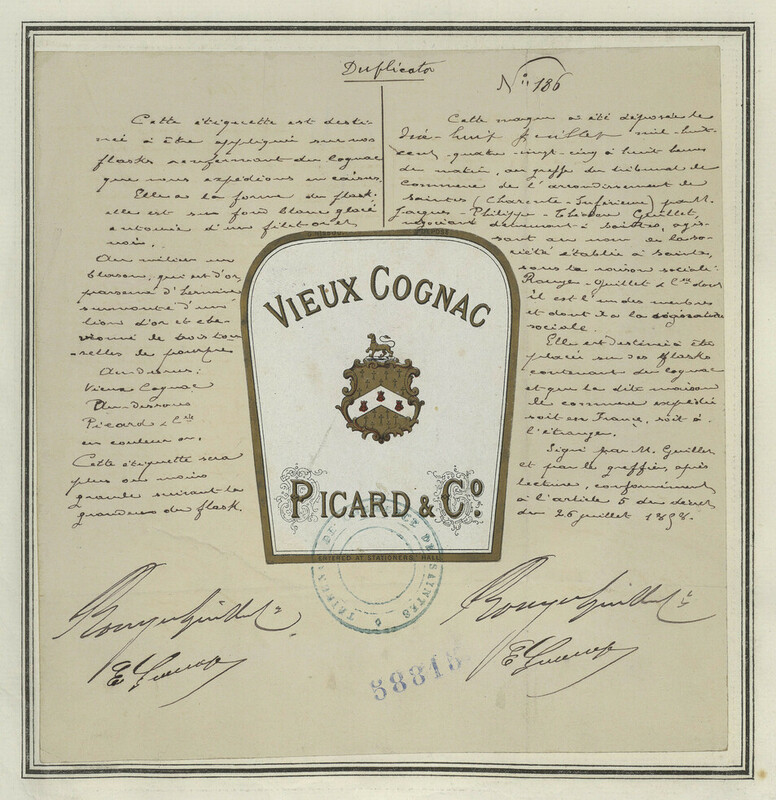 Duplicata
N° 186
Cette étiquette est desti-
née à être appliquée sur nos
flasks renfermant du Cognac
que nous expédions en caisses.
Elle a la forme du flask.
elle est sur fond blanc glacé
entourée d'un filet or et
noir.
Au milieu un
blason, qui est d'or
parsemé d'hermine
surmonté d'un
lion d'or et che-
vronné de trois tou-
relles de pourpre
Au-dessus:
Vieux Cognac
Au-dessous
Picard & Cie
en couleur or.
Cette étiquette sera
plus ou moins
grande suivant la
grandeur du flask.
Cette marque a été déposée le
dix-huit Juillet mil-huit
cent-quatre-vingt-cinq à huit heures
du matin, au greffe du tribunal de
Commerce de l'arrondissement de
Saintes (Charente-Inférieure) par M.
Jacques-Philippe-Théodore Guillet,
négociant demeurant à Saintes, agis-
sant au nom de la so-
ciété établie à Saintes,
sous la raison sociale:
Rouyer-Guillet & Cie dont
il est l'un des membres
et dont il a la signature
sociale.
Elle est destinée à être
placée sur des flasks
contenant du cognac
et que la dite maison
de commerce expédie
soit en France, soit à
l'étranger.
Signé par M. Guillet
et par le greffier, après
lecture, conformément
à l'article 5 du décret
du 26 juillet 1858.
VIEUX COGNAC
PICARD & Co.
ENTERED AT STATIONERS' HALL
TRIBUNAL DE COMMERCE DE SAINTES
Rouyer Guillet & Cie
Rouyer Guillet & Cie
58815